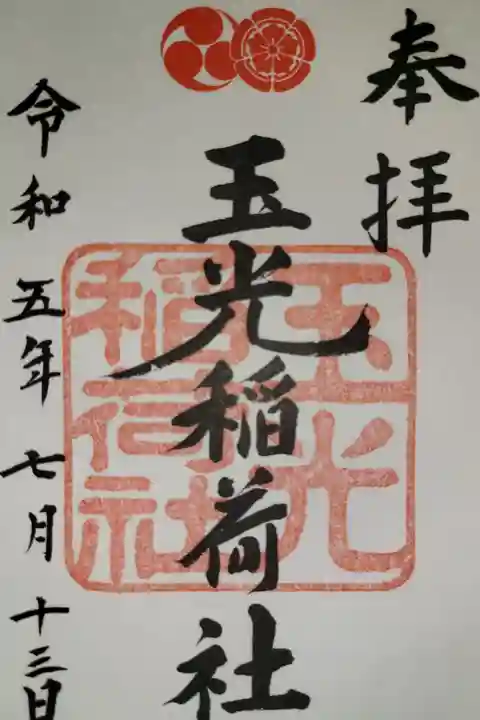 奉拝
玉光稲荷社
玉光
稲荷社
令和五年七月十三日